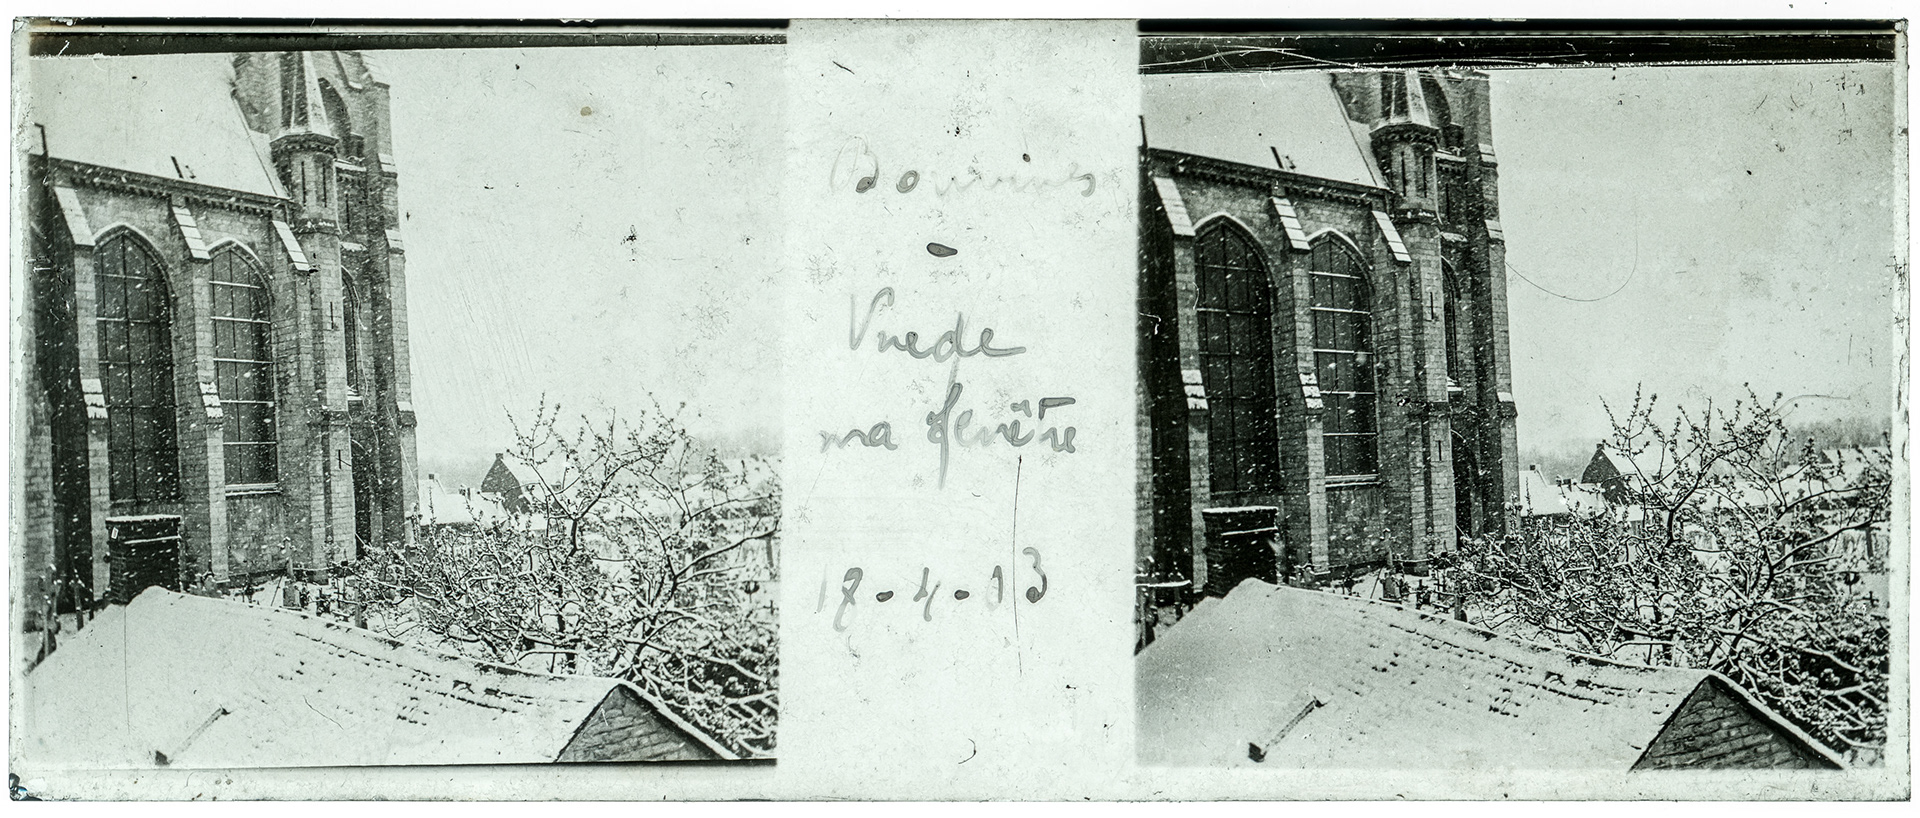 Bouvines
-
Vue de
ma fenêtre
17-4-13